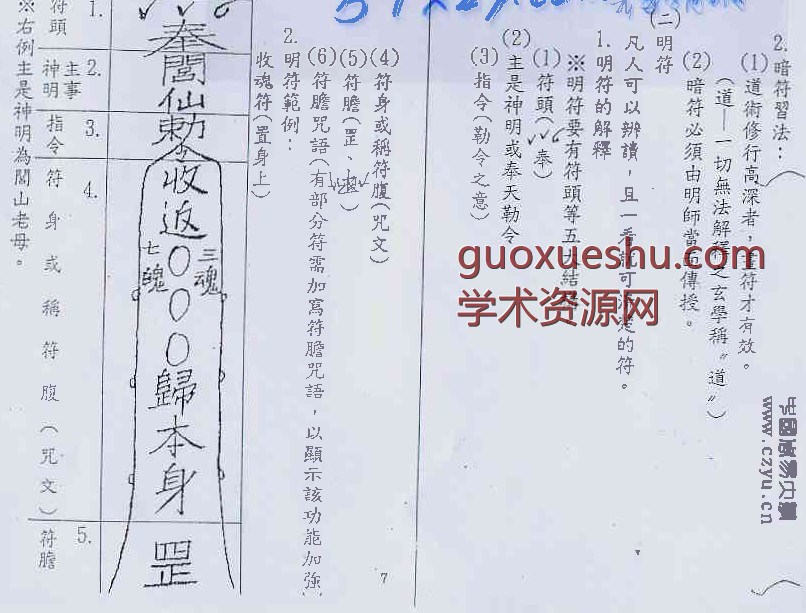 2. 暗符習法：
(1) 道術修行高深者，畫符才有效。
(道—一切無法解釋之玄學稱〝道〞)
(2) 暗符必須由明師當面傳授。
(二) 明符
凡人可以辨讀，且一看就可清楚的符。
1. 明符的解釋
※明符要有符頭等五大結構
(1) 符頭(奉)
(2) 主是神明或奉天勒令
(3) 指令(勒令之意)
(4) 符身或稱符腹(咒文)
(5) 符膽(罡、)
(6) 符膽咒語(有部分符需加寫符膽咒語，以顯示該功能加強)
2. 明符範例：
收魂符(置身上)
奉閭仙勅令收返
三魂
七魄
○○○歸本身
罡
1. 符頭
2. 主事神明
3. 指令
4. 符身或稱符腹(咒文)
5. 符膽
※右例主是神明為閭山老母。
7
guoxueshu.com
学术资源网
www.czyu.cn